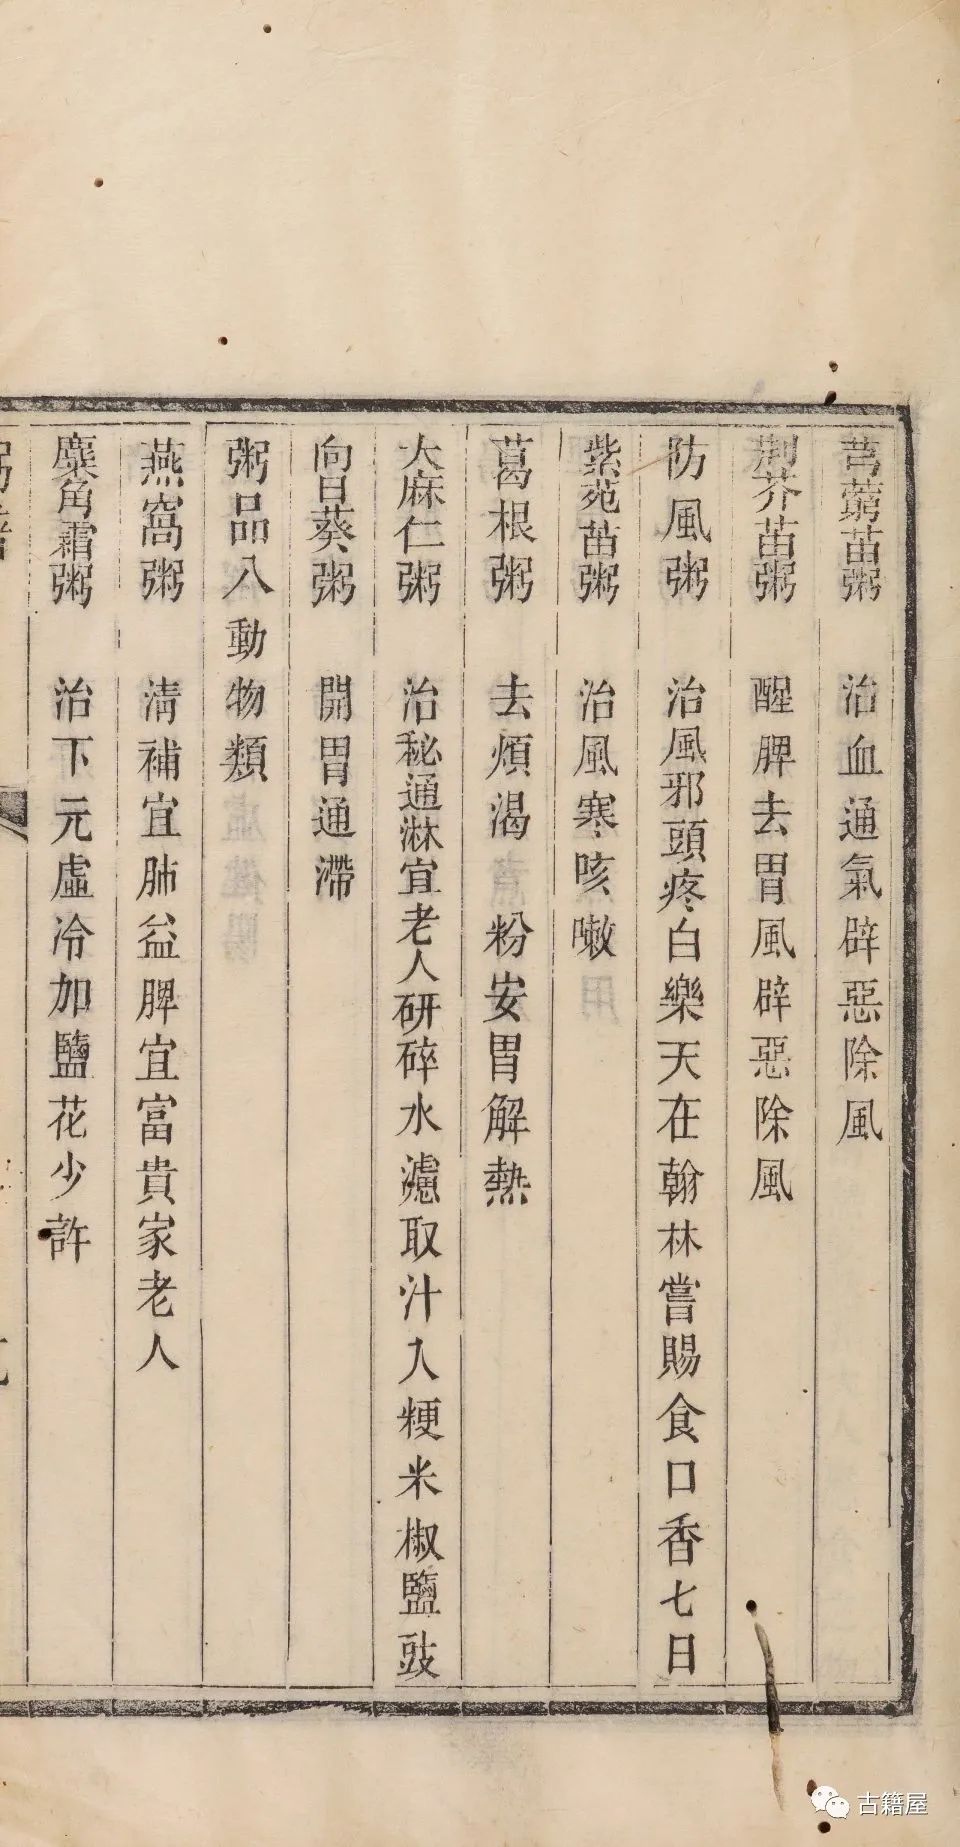 芎藭苗粥 治血通氣辟惡除風
荆芥苗粥 醒脾去胃風辟惡除風
防風粥 治風邪頭疼白樂天在翰林嘗賜食口香七日
紫苑苗粥 治風寒咳嗽
葛根粥 去煩渴 粉安胃解熱
大麻仁粥 治秘通淋宜老人研碎水濾取汁入粳米椒鹽豉
向日葵粥 開胃通滯
粥品八動物類
燕窩粥 清補宜肺益脾宜富貴家老人
麋角霜粥 治下元虛冷加鹽花少許
古籍屋